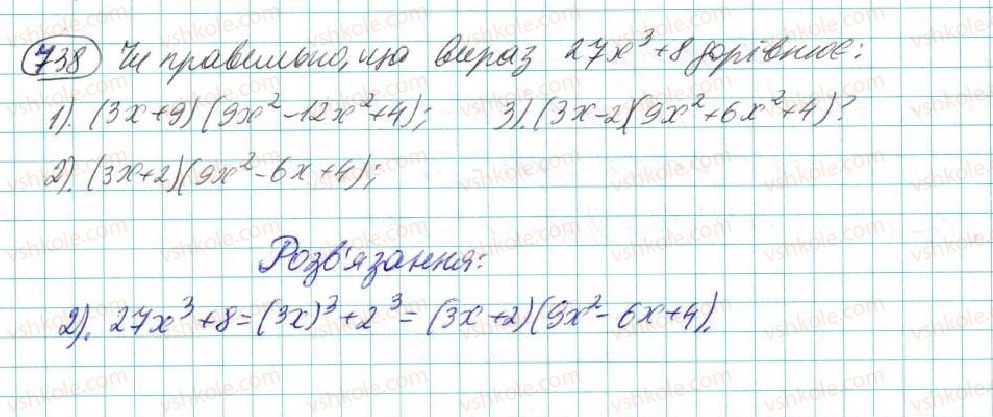 738 Чи правильно, що вираз 27x³+8 дорівнює:
1). (3x+9)(9x²-12x²+4); 3). (3x-2)(9x²+6x²+4)?
2). (3x+2)(9x²-6x+4);
Розв'язання:
2). 27x³+8=(3x)³+2³=(3x+2)(9x²-6x+4).